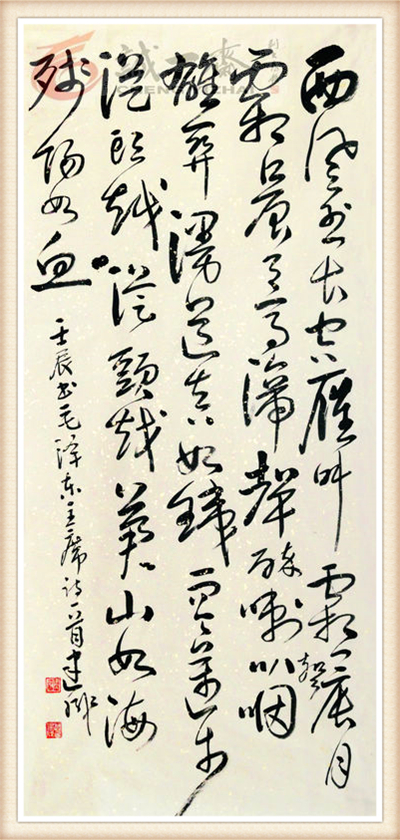 西风烈长空雁叫霜晨月
霜晨月马蹄聲碎喇叭聲咽
雄关漫道真如鐵而今迈步
從头越從頭越蒼山如海
残阳如血
壬辰书毛泽东主席诗一首建